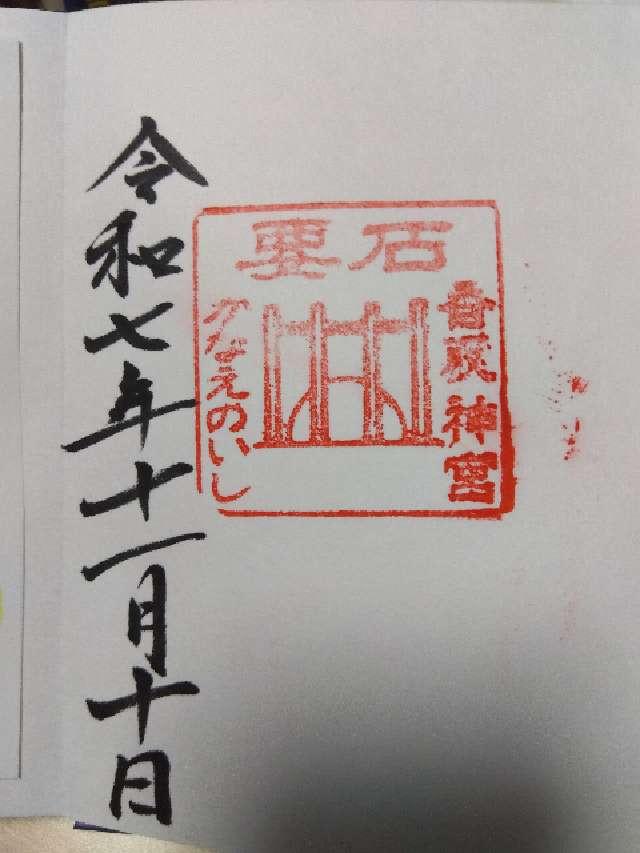 要石
香取神宮
かなえのいし
令和七年十一月十日